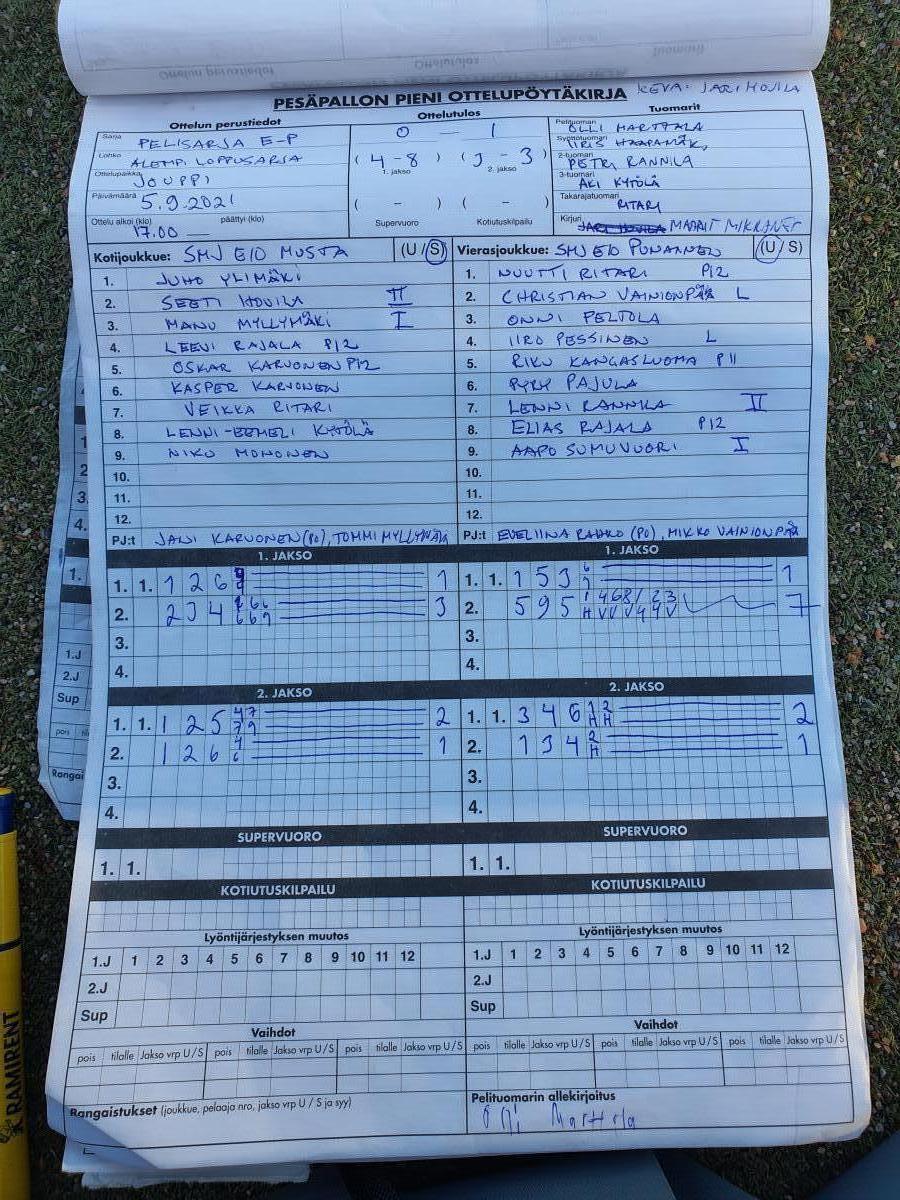 PESÄPALLON PIENI OTTELUPÖYTÄKIRJA KEVA: JARI HOVILA
Ottelun perustiedot Ottelutulos Tuomarit
Sarja PELISARJA E-P 0 - 1 Pelituomari OLLI MARTTALA
Lohko ALEMPI LOPPUSARJA (4-8) (3-3) Syöttötuomari IIRIS HAAPAMÄKI
1. jakso 2. jakso 2-tuomari PETRI RANNILA
Ottelupaikka JOUPPI 3-tuomari AKI KYTÖLÄ
Päivämäärä 5.9.2021 ( - ) ( - ) Takarajatuomari RITARI
Ottelu alkoi (klo) 17.00 päättyi (klo) — Supervuoro Kotiutuskilpailu Kirjuri JARI HOVILA MAARIT
Kotijoukkue: SMJ E10 MUSTA (U / S) Vierasjoukkue: SMJ E10 PUNAINEN (U / S)
1. JUHO YLIMÄKI 1. NUUTTI RITARI P12
2. SEETI HOVILA II 2. CHRISTIAN VAINIONPÄÄ L
3. MANU MYLLYMÄKI I 3. ONNI PELTOLA
4. LEEVI RAJALA P12 4. IIRO PESSINEN L
5. OSKAR KARVONEN P12 5. RIKU KANGASLUOMA P11
6. KASPER KARVONEN 6. PYRY PAJULA
7. VEIKKA RITARI 7. LENNI RANNILA II
8. LENNI-EEMELI KYTÖLÄ 8. ELIAS RAJALA P12
9. NIKO MONONEN 9. AAPO SUMUVUORI I
10. 10.
11. 11.
12. 12.
PJ:t JANI KARVONEN (PO), TOMMI MYLLYMÄKI PJ:t EVELIINA (PO), MIKKO VAINIONPÄÄ
1. JAKSO 1. JAKSO
1. 1. 1 2 6 1 1. 1. 1 5 3 6 7 1
2. 2 3 4 3 2. 5 9 5 7
3. 3.
4. 4.
2. JAKSO 2. JAKSO
1. 1. 1 2 5 47 79 2 1. 1. 3 4 6 12 HH 2
2. 1 2 6 4 6 1 2. 1 3 4 2 H 1
3. 3.
4. 4.
SUPERVUORO SUPERVUORO
1. 1. 1. 1.
KOTIUTUSKILPAILU KOTIUTUSKILPAILU
Lyöntijärjestyksen muutos Lyöntijärjestyksen muutos
1.J 1 2 3 4 5 6 7 8 9 10 11 12 1.J 1 2 3 4 5 6 7 8 9 10 11 12
2.J 2.J
Sup Sup
Vaihdot Vaihdot
pois tilalle Jakso vrp U/S pois tilalle Jakso vrp U/S pois tilalle Jakso vrp U/S pois tilalle Jakso vrp U/S pois tilalle Jakso vrp U/S pois tilalle Jakso vrp U/S
Rangaistukset (joukkue, pelaaja nro, jakso vrp U / S ja syy) Pelituomarin allekirjoitus
Olli Marttala
RAMIRENT